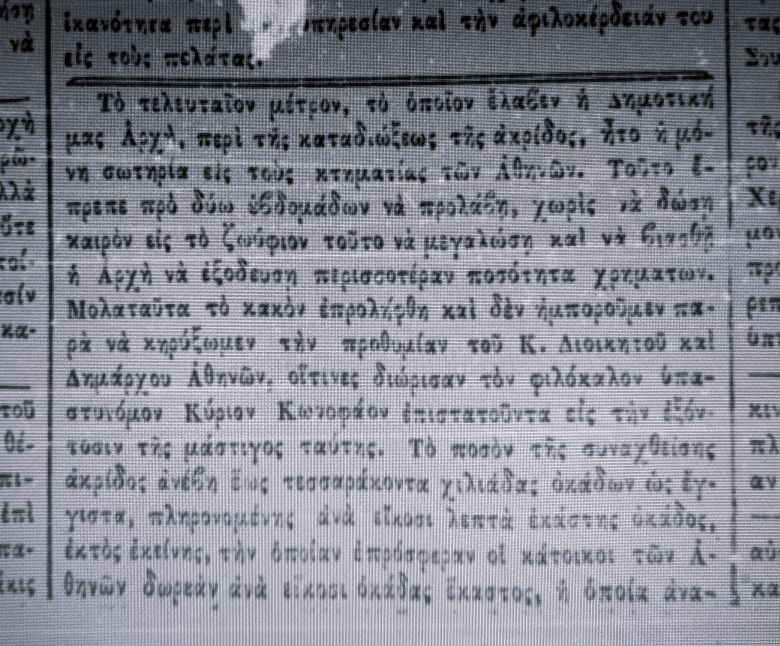 ἱκανότητα περὶ ὑπηρεσίαν καὶ τὴν ἀφιλοκέρδειάν του
εἰς τοὺς πελάτας.
Τὸ τελευταῖον μέτρον, τὸ ὁποῖον ἔλαβεν ἡ Δημοτική
μας Ἀρχὴ, περὶ τῆς καταδιώξεως τῆς ἀκρίδος, ἦτο ἡ μό-
νη σωτηρία εἰς τοὺς κτηματίας τῶν Ἀθηνῶν. Τοῦτο ἔ-
πρεπε πρὸ δύω ἑβδομάδων νὰ προλάβῃ, χωρὶς νὰ δώσῃ
καιρὸν εἰς τὸ ζωύφιον τοῦτο νὰ μεγαλώσῃ καὶ νὰ βιασθῇ
ἡ Ἀρχὴ νὰ ἐξοδευσῃ περισσοτέραν ποσότητα χρηματων.
Μολαταῦτα τὸ κακὸν ἐπρολήφθη καὶ δὲν ἠμποροῦμεν πα-
ρὰ νὰ κηρύξωμεν τὴν προθυμίαν τοῦ Κ. Διοικητοῦ καὶ
Δημάρχου Ἀθηνῶν, οἵτινες διώρισαν τὸν φιλόκαλον ὑπα-
στυνόμον Κύριον Κωνοφάον ἐπιστατοῦντα εἰς τὴν ἐξόν-
τωσιν τῆς μάστιγος ταύτης. Τὸ ποσὸν τῆς συναχθείσης
ἀκρίδος ἀνέβη ἕως τεσσαράκοντα χιλιάδας ὀκάδων ὡς ἔγ-
γιστα, πληρονομένης ἀνὰ εἴκοσι λεπτὰ ἑκάστης ὀκάδος,
ἐκτὸς ἐκείνης, τὴν ὁποίαν ἐπρόσφεραν οἱ κάτοικοι τῶν Ἀ-
θηνῶν δωρεὰν ἀνὰ εἴκοσι ὀκάδας ἕκαστος, ἡ ὁποία ἀνα-